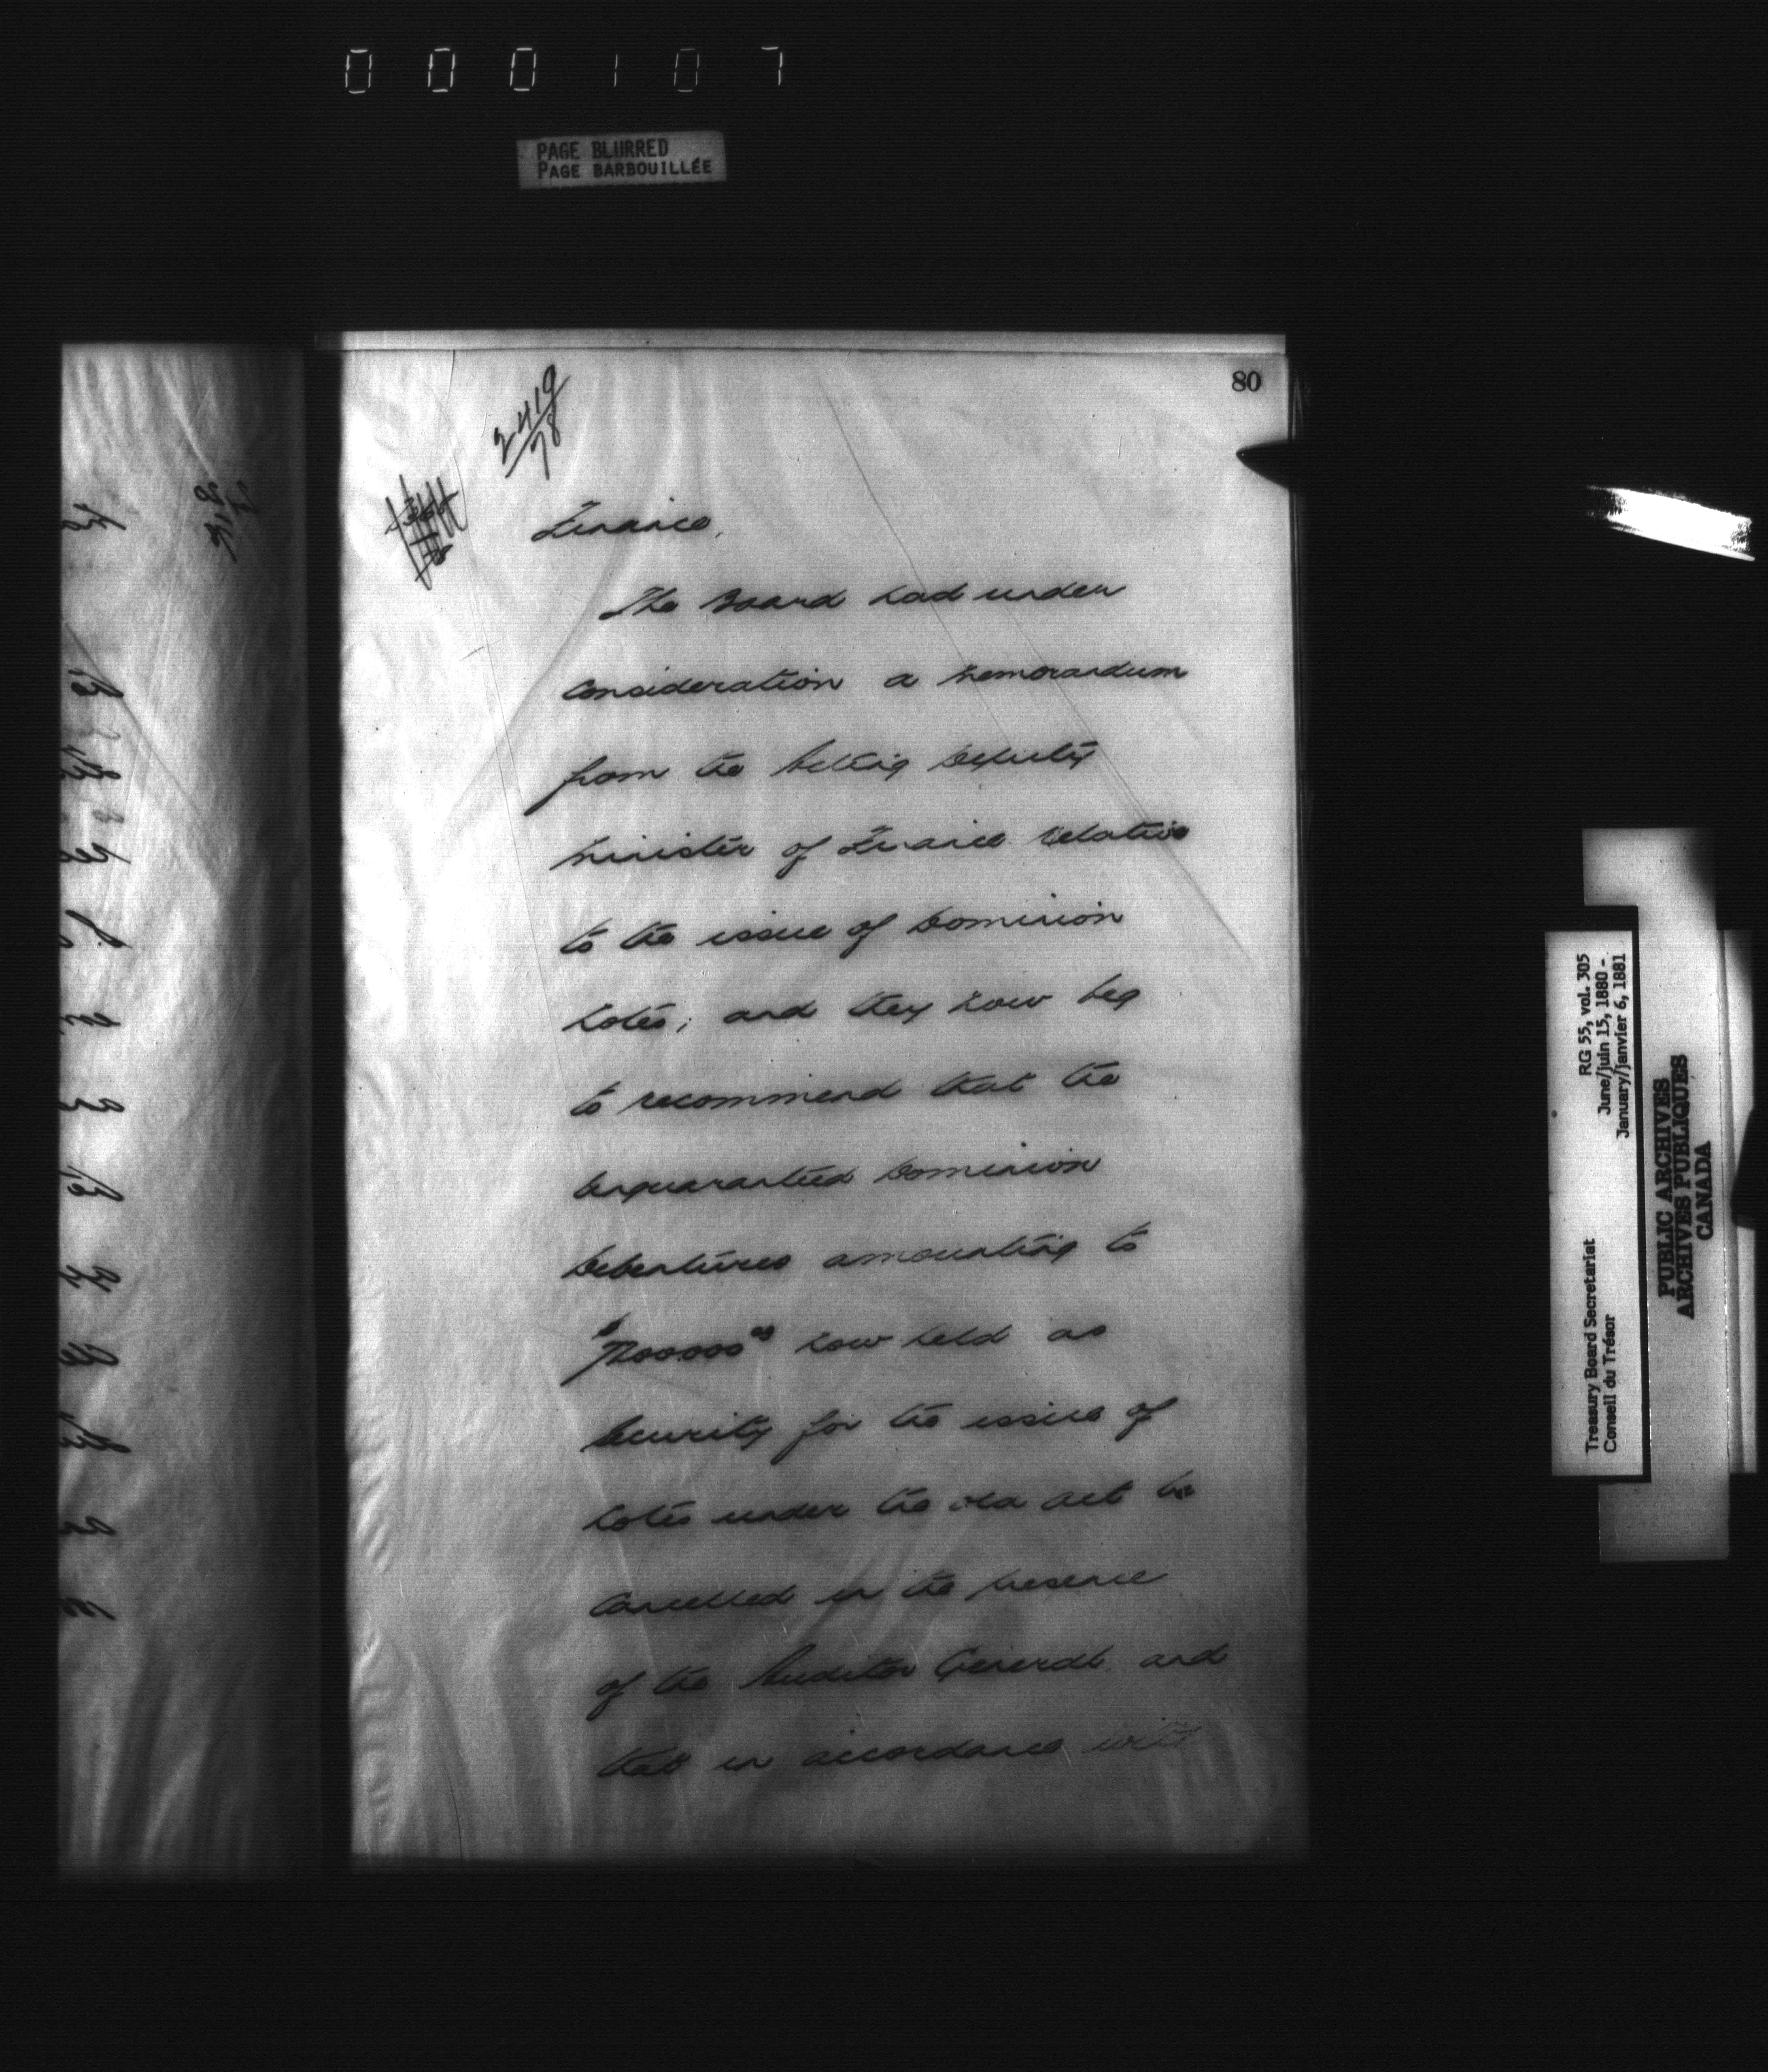 000107
PAGE BLURRED
PAGE BARBOUILLÉE
80
2419
78
Finance,
The Board had under
Consideration a Memorandum
from the Acting Deputy
Minister of Finance relative
to the issue of Dominion
Notes; and they now beg
to recommend that the
Unguaranteed Dominion
Debentures amounting to
now held as
Security for the issue of
Notes under the old act be
Cancelled in the presence
of the Auditor General and
that in accordance with
RG 55, vol. 305
June/juin 15, 1880 -
January/janvier 6, 1881
Treasury Board Secretariat
Conseil du Trésor
PUBLIC ARCHIVES
ARCHIVES PUBLIQUES
CANADA